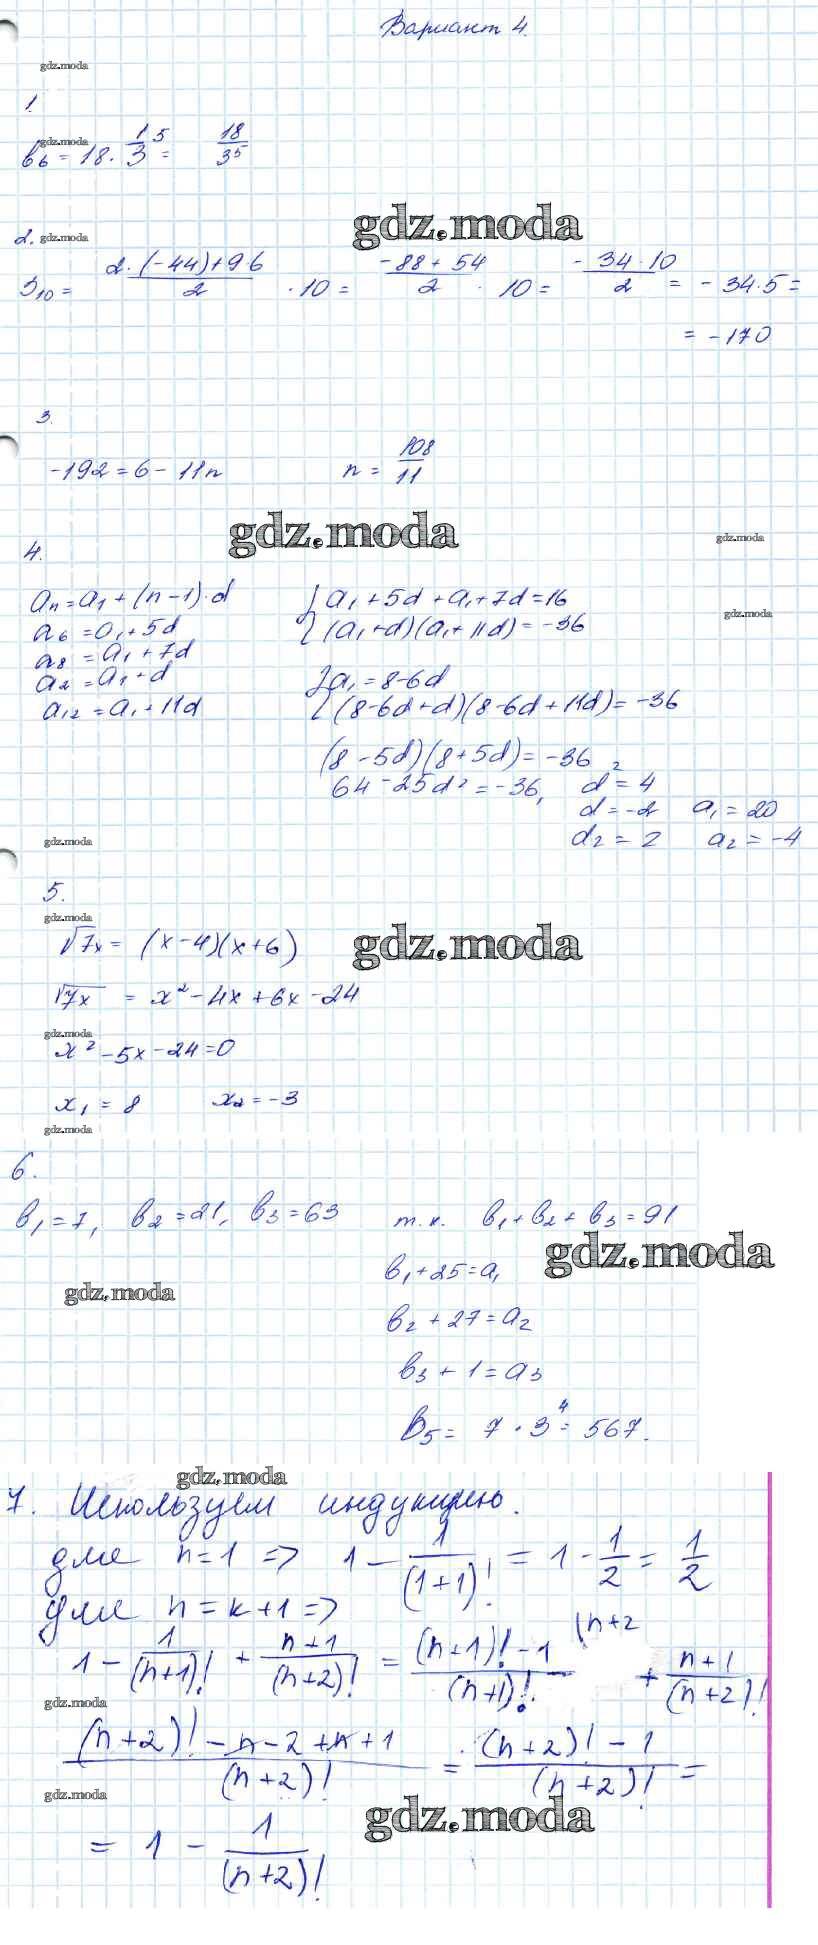 Вариант 4.
gdz.moda
1.
gdz.moda
b₆ = 18 · 1/3⁵ = 18/3⁵
gdz.moda
2. gdz.moda
S₁₀ = (2·(-44)+9·6)/2 · 10 = (-88+54)/2 · 10 = - 34·10/2 = - 34·5 =
= -170
3.
-192 = 6 - 11n n = 108/11
gdz.moda
gdz.moda
4.
aₙ = a₁ + (n-1)·d { a₁ + 5d + a₁ + 7d = 16
gdz.moda
a₆ = a₁ + 5d (a₁+d)(a₁+11d) = -36
a₈ = a₁ + 7d
a₂ = a₁ + d { a₁ = 8-6d
a₁₂ = a₁ + 11d (8-6d+d)(8-6d+11d) = -36
(8-5d)(8+5d) = -36
64 - 25d² = -36, d² = 4
d = -2 a₁ = 20
gdz.moda d₂ = 2 a₂ = -4
5.
gdz.moda
√7x = (x-4)(x+6)
gdz.moda
√7x = x² - 4x + 6x - 24
gdz.moda
x² - 5x - 24 = 0
x₁ = 8 x₂ = -3
gdz.moda
6.
b₁ = 7, b₂ = 21, b₃ = 63 т.к. b₁ + b₂ + b₃ = 91
gdz.moda
b₁ + 25 = a₁
gdz.moda
b₂ + 27 = a₂
b₃ + 1 = a₃
B₅ = 7 · 3⁴ = 567.
gdz.moda
7. Используем индукцию.
для n = 1 => 1 - 1/(1+1)! = 1 - 1/2 = 1/2
для n = k+1 =>
1 - 1/(n+1)! + (n+1)/(n+2)! = ((n+1)! - 1)/(n+1)! (n+2 + (n+1)/(n+2)!
gdz.moda
((n+2)! - n - 2 + n + 1)/(n+2)! = ((n+2)! - 1)/(n+2)! =
gdz.moda
gdz.moda
= 1 - 1/(n+2)!